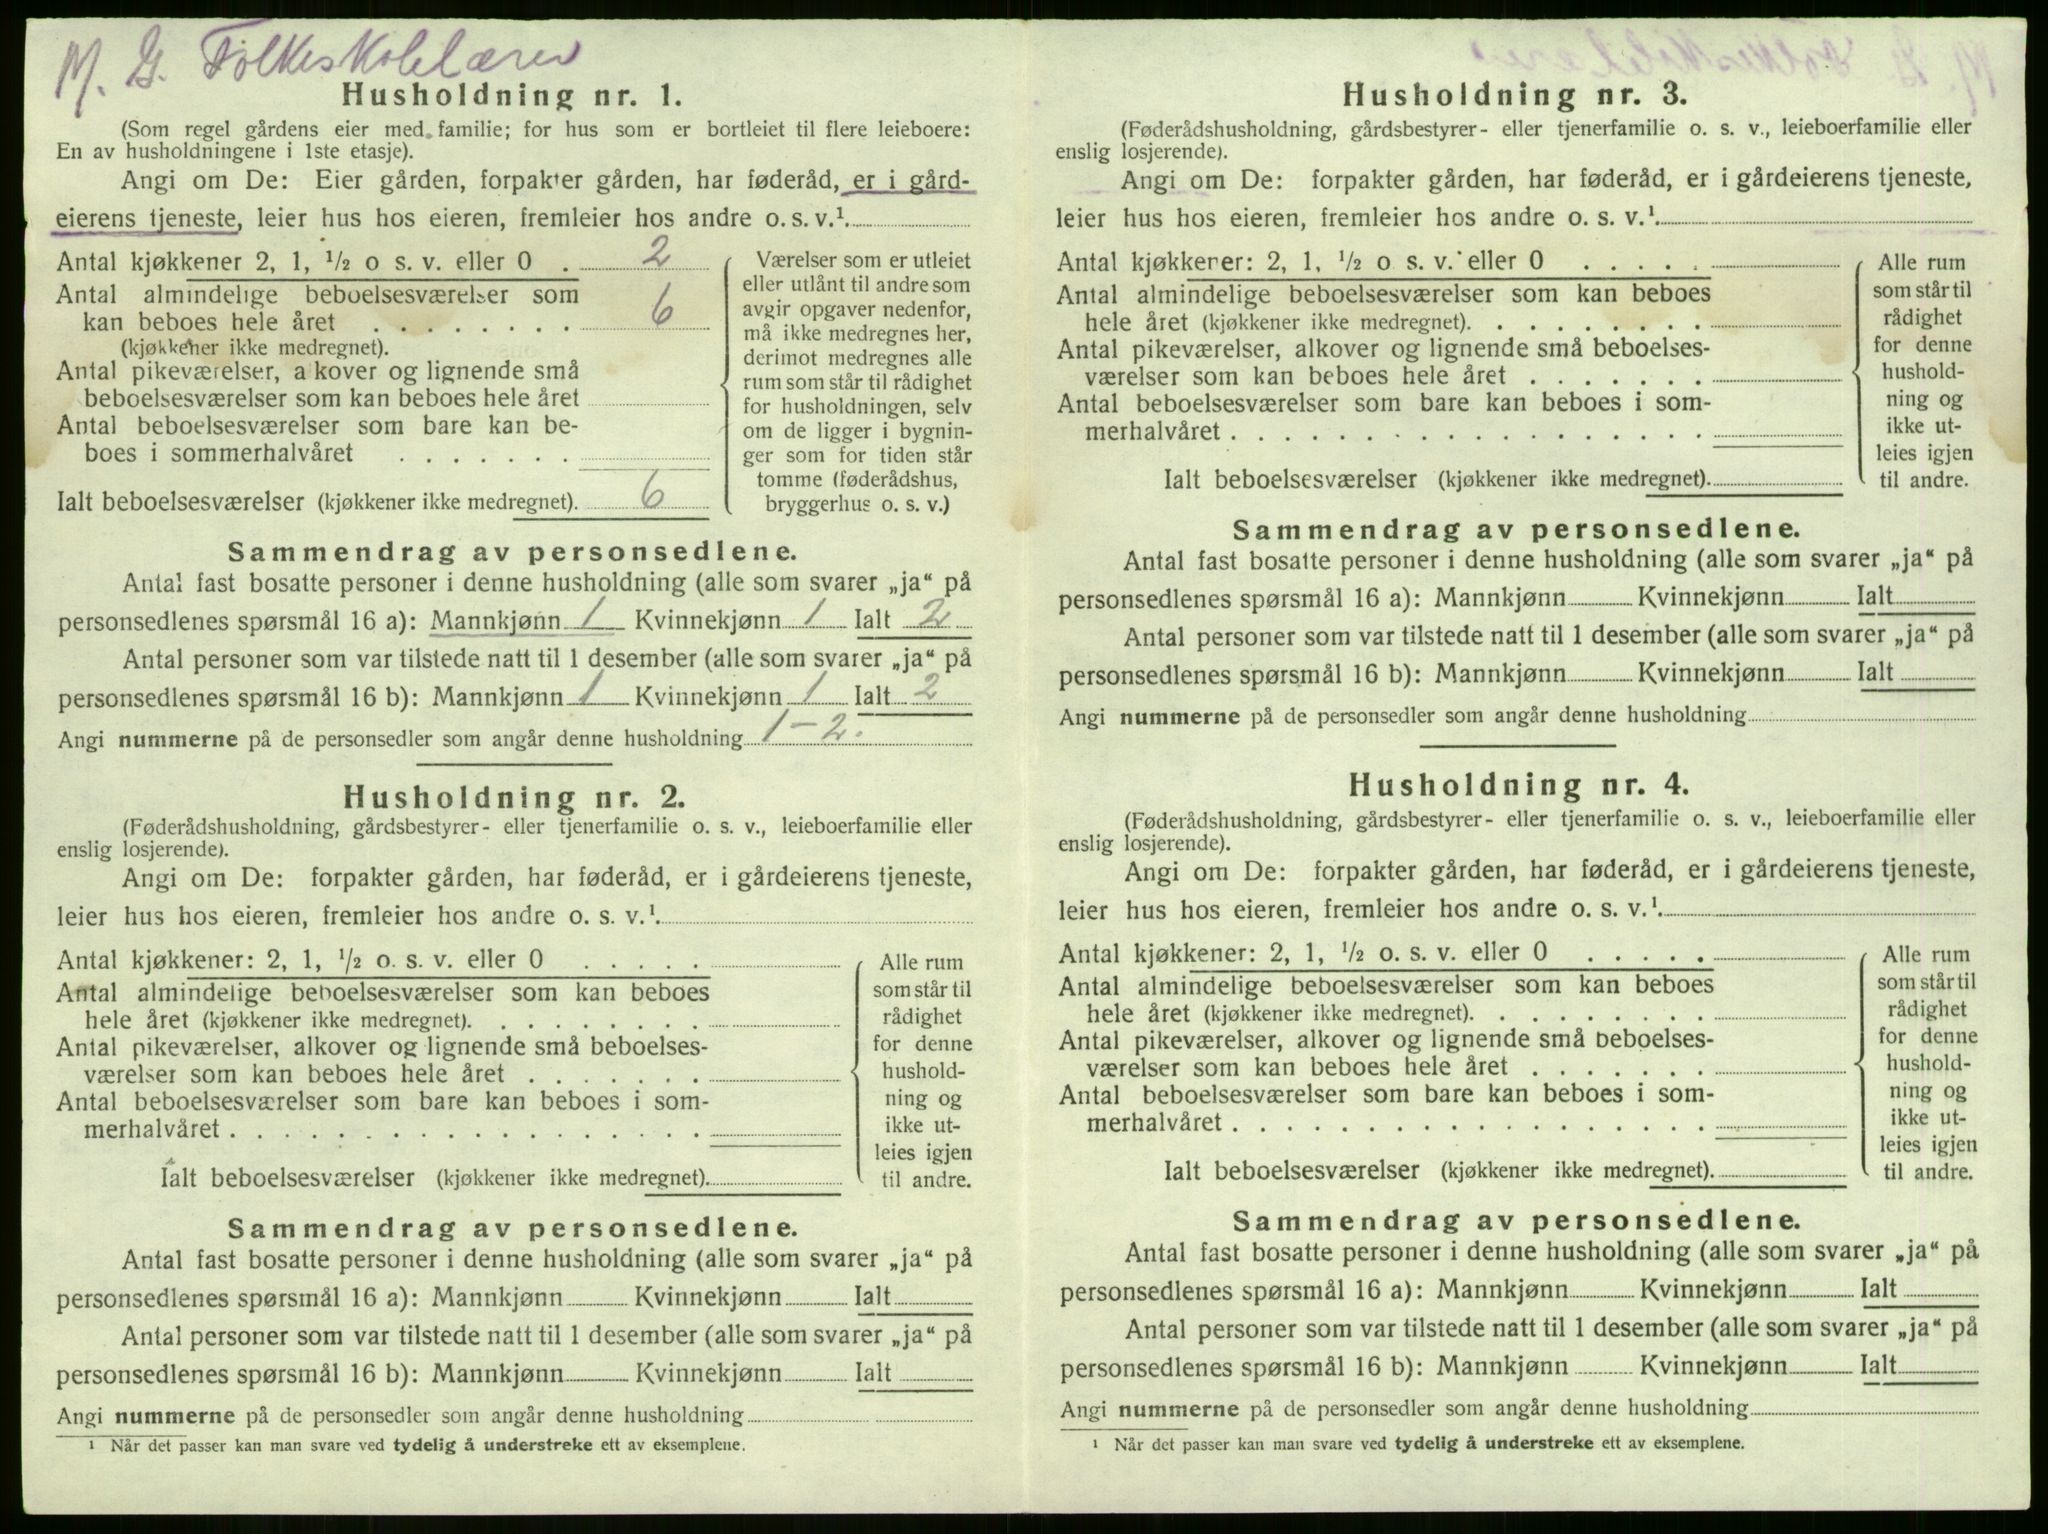 M. G. Folkeskolelærer
Husholdning nr. 1.
(Som regel gårdens eier med familie; for hus som er bortleiet til flere leieboere:
En av husholdningene i 1ste etasje).
Angi om De: Eier gården, forpakter gården, har føderåd, er i gård-
eierens tjeneste, leier hus hos eieren, fremleier hos andre o. s. v.¹
Antal kjøkkener 2, 1, ½ o s. v. eller 0 . 2
Antal almindelige beboelsesværelser som
kan beboes hele året . . . . . . . . 6
(kjøkkener ikke medregnet).
Antal pikeværelser, alkover og lignende små
beboelsesværelser som kan beboes hele året
Antal beboelsesværelser som bare kan be-
boes i sommerhalvåret . . . . . . .
Ialt beboelsesværelser (kjøkkener ikke medregnet). 6
Værelser som er utleiet
eller utlånt til andre som
avgir opgaver nedenfor,
må ikke medregnes her,
derimot medregnes alle
rum som står til rådighet
for husholdningen, selv
om de ligger i bygnin-
ger som for tiden står
tomme (føderådshus,
bryggerhus o. s. v.)
Sammendrag av personsedlene.
Antal fast bosatte personer i denne husholdning (alle som svarer „ja“ på
personsedlenes spørsmål 16 a): Mannkjønn 1 Kvinnekjønn 1 Ialt 2
Antal personer som var tilstede natt til 1 desember (alle som svarer „ja“ på
personsedlenes spørsmål 16 b): Mannkjønn 1 Kvinnekjønn 1 Ialt 2
Angi nummerne på de personsedler som angår denne husholdning 1-2.
Husholdning nr. 2.
(Føderådshusholdning, gårdsbestyrer- eller tjenerfamilie o. s. v., leieboerfamilie eller
enslig losjerende).
Angi om De: forpakter gården, har føderåd, er i gårdeierens tjeneste,
leier hus hos eieren, fremleier hos andre o. s. v.¹
Antal kjøkkener: 2, 1, ½ o. s. v. eller 0 . . . . .
Antal almindelige beboelsesværelser som kan beboes
hele året (kjøkkener ikke medregnet). . . . . . . . .
Antal pikeværelser, alkover og lignende små beboelses-
værelser som kan beboes hele året . . . . . . .
Antal beboelsesværelser som bare kan beboes i som-
merhalvåret . . . . . . . . . . . . . . . . . .
Ialt beboelsesværelser (kjøkkener ikke medregnet).
Alle rum
som står til
rådighet
for denne
hushold-
ning og
ikke ut-
leies igjen
til andre.
Sammendrag av personsedlene.
Antal fast bosatte personer i denne husholdning (alle som svarer „ja“ på
personsedlenes spørsmål 16 a): Mannkjønn Kvinnekjønn Ialt
Antal personer som var tilstede natt til 1 desember (alle som svarer „ja“ på
personsedlenes spørsmål 16 b): Mannkjønn Kvinnekjønn Ialt
Angi nummerne på de personsedler som angår denne husholdning
¹ Når det passer kan man svare ved tydelig å understreke ett av eksemplene.
Husholdning nr. 3.
(Føderådshusholdning, gårdsbestyrer- eller tjenerfamilie o. s. v., leieboerfamilie eller
enslig losjerende).
Angi om De: forpakter gården, har føderåd, er i gårdeierens tjeneste,
leier hus hos eieren, fremleier hos andre o. s. v.¹
Antal kjøkkener: 2, 1, ½ o s. v. eller 0 . . . . .
Antal almindelige beboelsesværelser som kan beboes
hele året (kjøkkener ikke medregnet). . . . . . . . .
Antal pikeværelser, alkover og lignende små beboelses-
værelser som kan beboes hele året . . . . . . .
Antal beboelsesværelser som bare kan beboes i som-
merhalvåret . . . . . . . . . . . . . . . . . .
Ialt beboelsesværelser (kjøkkener ikke medregnet).
Alle rum
som står til
rådighet
for denne
hushold-
ning og
ikke ut-
leies igjen
til andre.
Sammendrag av personsedlene.
Antal fast bosatte personer i denne husholdning (alle som svarer „ja“ på
personsedlenes spørsmål 16 a): Mannkjønn Kvinnekjønn Ialt
Antal personer som var tilstede natt til 1 desember (alle som svarer „ja“ på
personsedlenes spørsmål 16 b): Mannkjønn Kvinnekjønn Ialt
Angi nummerne på de personsedler som angår denne husholdning
Husholdning nr. 4.
(Føderådshusholdning, gårdsbestyrer- eller tjenerfamilie o. s. v., leieboerfamilie eller
enslig losjerende).
Angi om De: forpakter gården, har føderåd, er i gårdeierens tjeneste,
leier hus hos eieren, fremleier hos andre o. s. v.¹
Antal kjøkkener: 2, 1, ½ o. s. v. eller 0 . . . . .
Antal almindelige beboelsesværelser som kan beboes
hele året (kjøkkener ikke medregnet). . . . . . . . .
Antal pikeværelser, alkover og lignende små beboelses-
værelser som kan beboes hele året . . . . . . .
Antal beboelsesværelser som bare kan beboes i som-
merhalvåret . . . . . . . . . . . . . . . . . .
Ialt beboelsesværelser (kjøkkener ikke medregnet).
Alle rum
som står til
rådighet
for denne
hushold-
ning og
ikke ut-
leies igjen
til andre.
Sammendrag av personsedlene.
Antal fast bosatte personer i denne husholdning (alle som svarer „ja“ på
personsedlenes spørsmål 16 a): Mannkjønn Kvinnekjønn Ialt
Antal personer som var tilstede natt til 1 desember (alle som svarer „ja“ på
personsedlenes spørsmål 16 b): Mannkjønn Kvinnekjønn Ialt
Angi nummerne på de personsedler som angår denne husholdning
¹ Når det passer kan man svare ved tydelig å understreke ett av eksemplene.